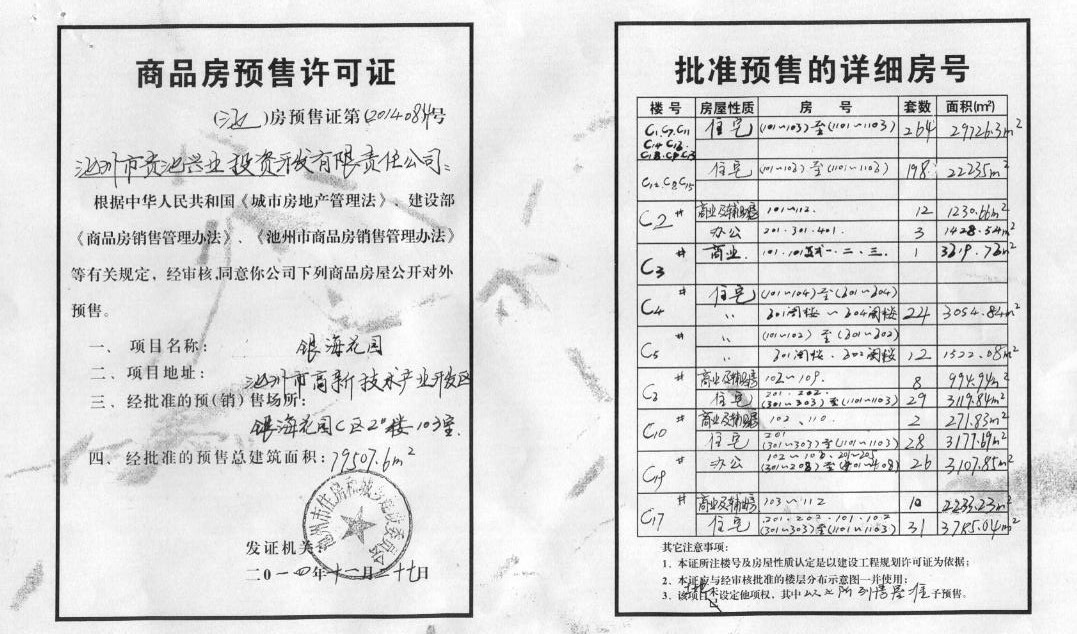 商品房预售许可证
(池)房预售证第(2014084)号
池州市贵池兴业投资开发有限责任公司:
根据中华人民共和国《城市房地产管理法》、建设部
《商品房销售管理办法》、《池州市商品房销售管理办法》
等有关规定,经审核,同意你公司下列商品房屋公开对外
预售。
一、项目名称: 银海花园
二、项目地址: 池州市高新技术产业开发区
三、经批准的预(销)售场所:
银海花园C区2#楼103室.
四、经批准的预售总建筑面积:79507.6m²
池州市住房和城乡建设委员会
发证机关:
二0一四年十二月二十七日
批准预售的详细房号
楼号 房屋性质 房号 套数 面积(m²)
C1.C7.C11 住宅 (101~103)至(1101~1103) 264 29726.3m²
C12 C8 C15 住宅 (101~103)至(1101~1103) 198 22235m²
C2# 商业及辅助房 101~112. 12 1230.66m²
办公 201.301.401. 3 1428.54m²
C3# 商业. 一.二.三. 1
C4# 住宅 (101~104)至(301~304)
〃 301阁楼~304阁楼 24 3054.84m²
C5# 〃 (101~102)至(301~302)
〃 301阁楼.302阁楼 12 1522.08m²
# 商业及辅助房 102~109. 8 994.94m²
住宅 201.202. (301~303)至(1101~1103) 29 3119.84m²
C10# 商业及辅助房 102、110. 2 271.83m²
住宅 201 (301~303)至(1101~1103) 28 3177.69m²
C19# 办公 26 3107.85m²
C17# 商业及辅助房 103~112 10 2233.23m²
住宅 201.202.101.102 (301~303)至(1101~1103) 31 3785.04m²
其它注意事项:
1、本证所注楼号及房屋性质认定是以建设工程规划许可证为依据;
2、本证应与经审核批准的楼层分布示意图一并使用;
3、该项目未设定他项权,其中以上所列房屋准予预售。